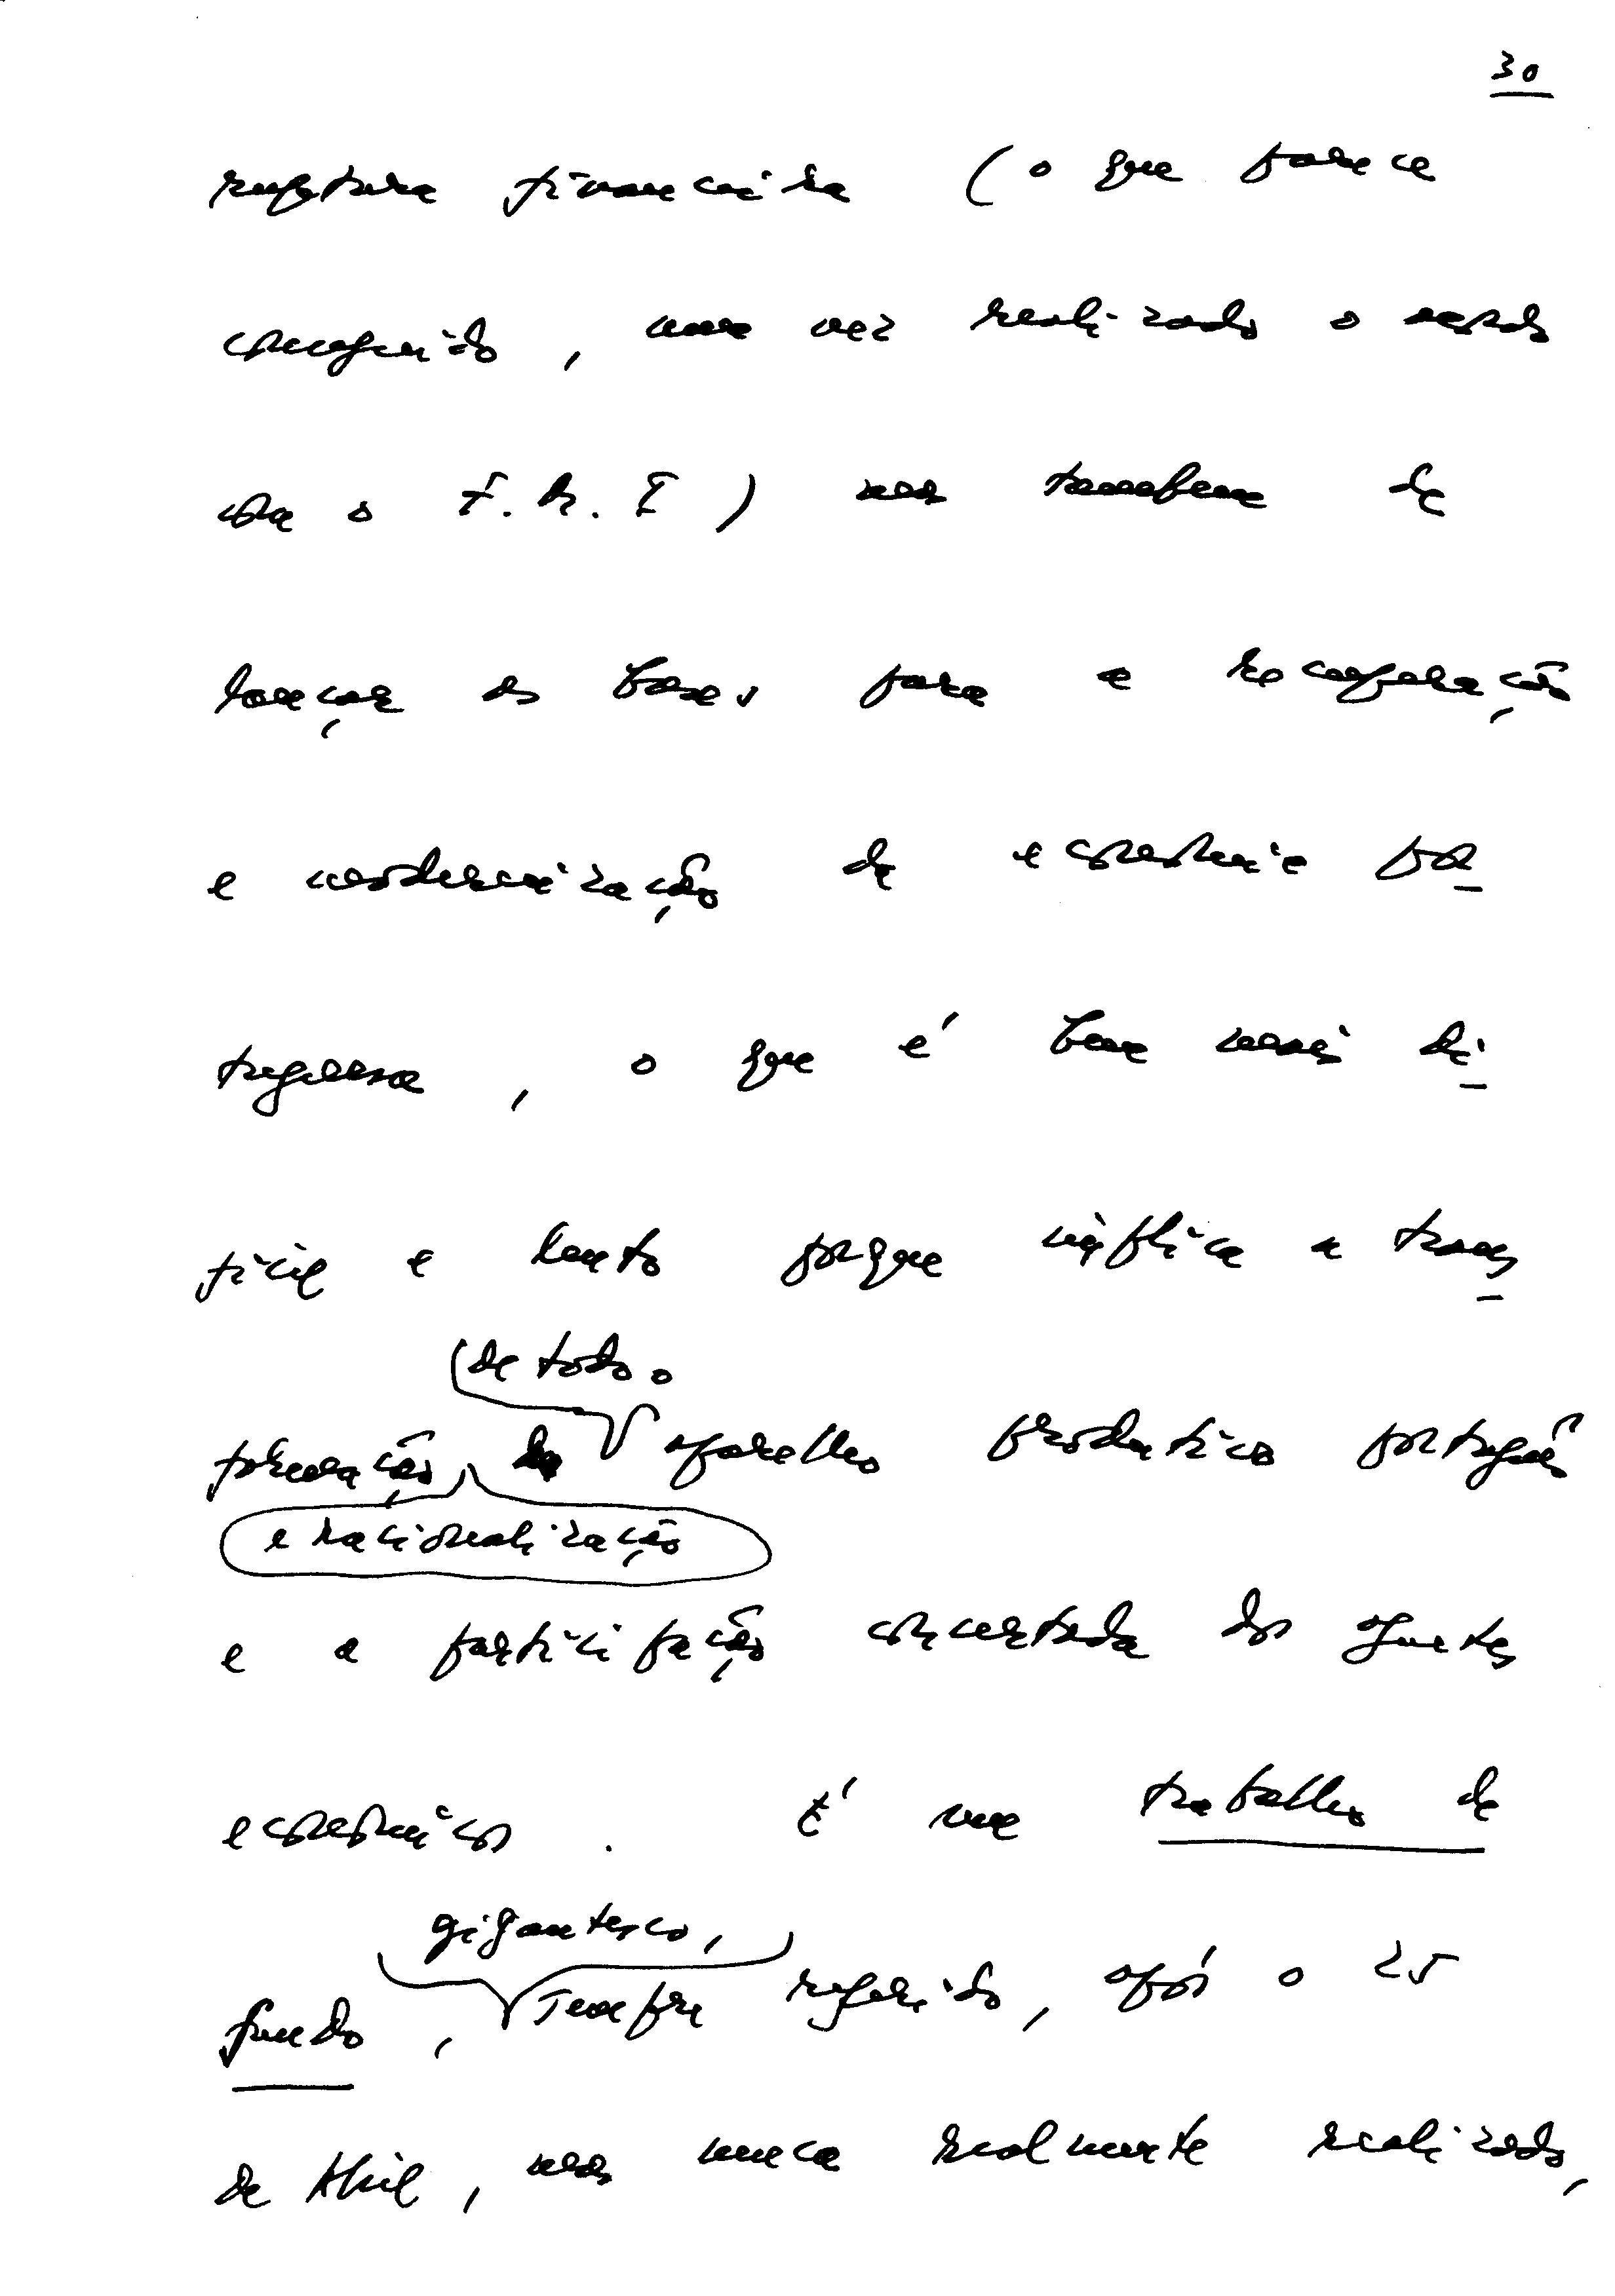 30
ruptura financeira (o que parece
conseguido, uma vez realizado o acordo
com o F.M.I) mas também de
lançar as bases para a recuperação
e modernização da economia por
tuguesa, o que é bem mais di
fícil e lento porque implica a trans
(de todo o
formação do aparelho produtivo português
e racionalização
e a participação concertada dos agentes
económicos. É um trabalho de
gigantesco,
fundo, sempre referido, após o 25
de Abril, mas nunca realmente realizado,